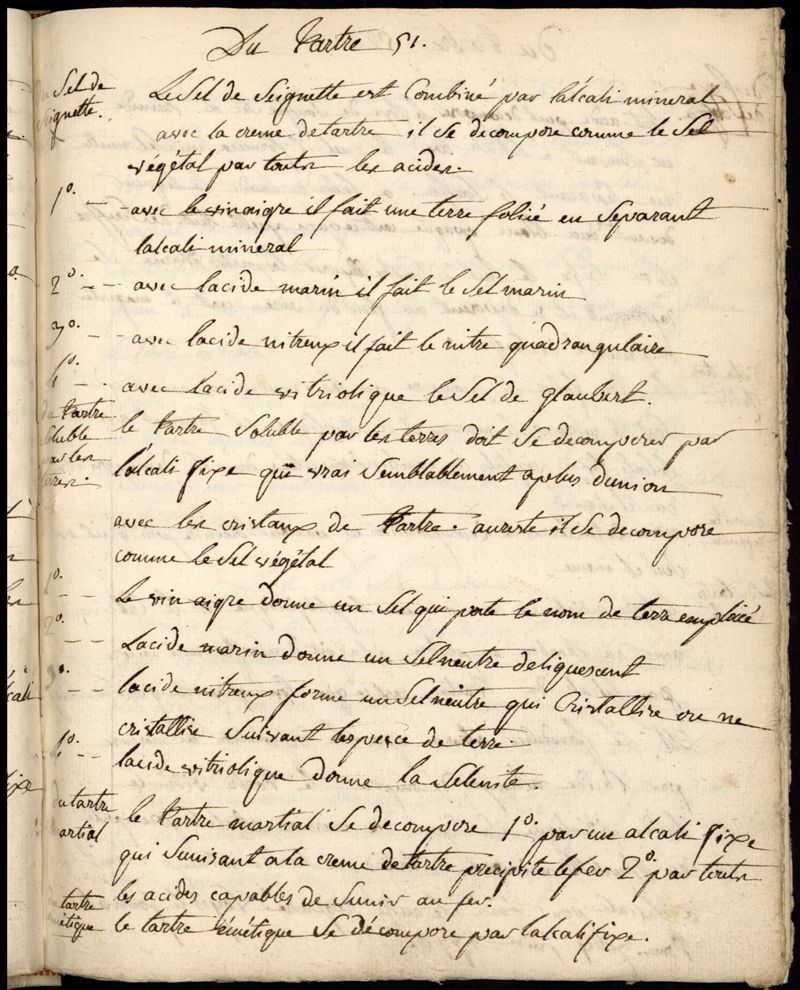 Du Tartre 51.
Sel de
Seignette.
Le Sel de Seignette est Combiné par lalcali mineral
avec la creme de tartre il se decompose comme le Sel
végétal par touts les acides.
1º. - - avec le vinaigre il fait une terre foliée en Separant
lalcali mineral
2º. - - avec lacide marin il fait le Sel marin
3º. - - avec lacide nitreux il fait le nitre quadrangulaire
4º. - - avec lacide vitriolique le Sel de glaubert.
du Tartre
Soluble
par les
terres.
le Tartre Soluble par les terres doit se decomposer par
lálcali fixe qui vrai Semblablement a plus dunion
avec les cristaux de Tartre. aureste il se decompose
comme le Sel végétal
1º. - - Le vinaigre donne un Sel qui porte le nom de terra
2º. - - Lacide marin donne un Sel neutre deliquesent
3º. - - lacide nitreux forme un Sel neutre qui Cristallise ou ne
cristallise Suivant lespece de terre.
4º. - - lacide vitriolique donne la Selenite.
du tartre
martial
le Tartre martial Se decompose 1º. par un alcali fixe
qui Sunissant a la creme de tartre precipite le fer 2º. par touts
les acides capables de Sunir au fer.
tartre
émétique
le tartre émétique Se décompose par lalcali fixe.